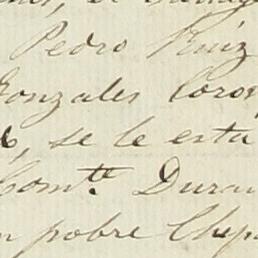 Pedro Ruiz
Gonzales Coro
, se le esta
Comte. Duran
pobre Chep